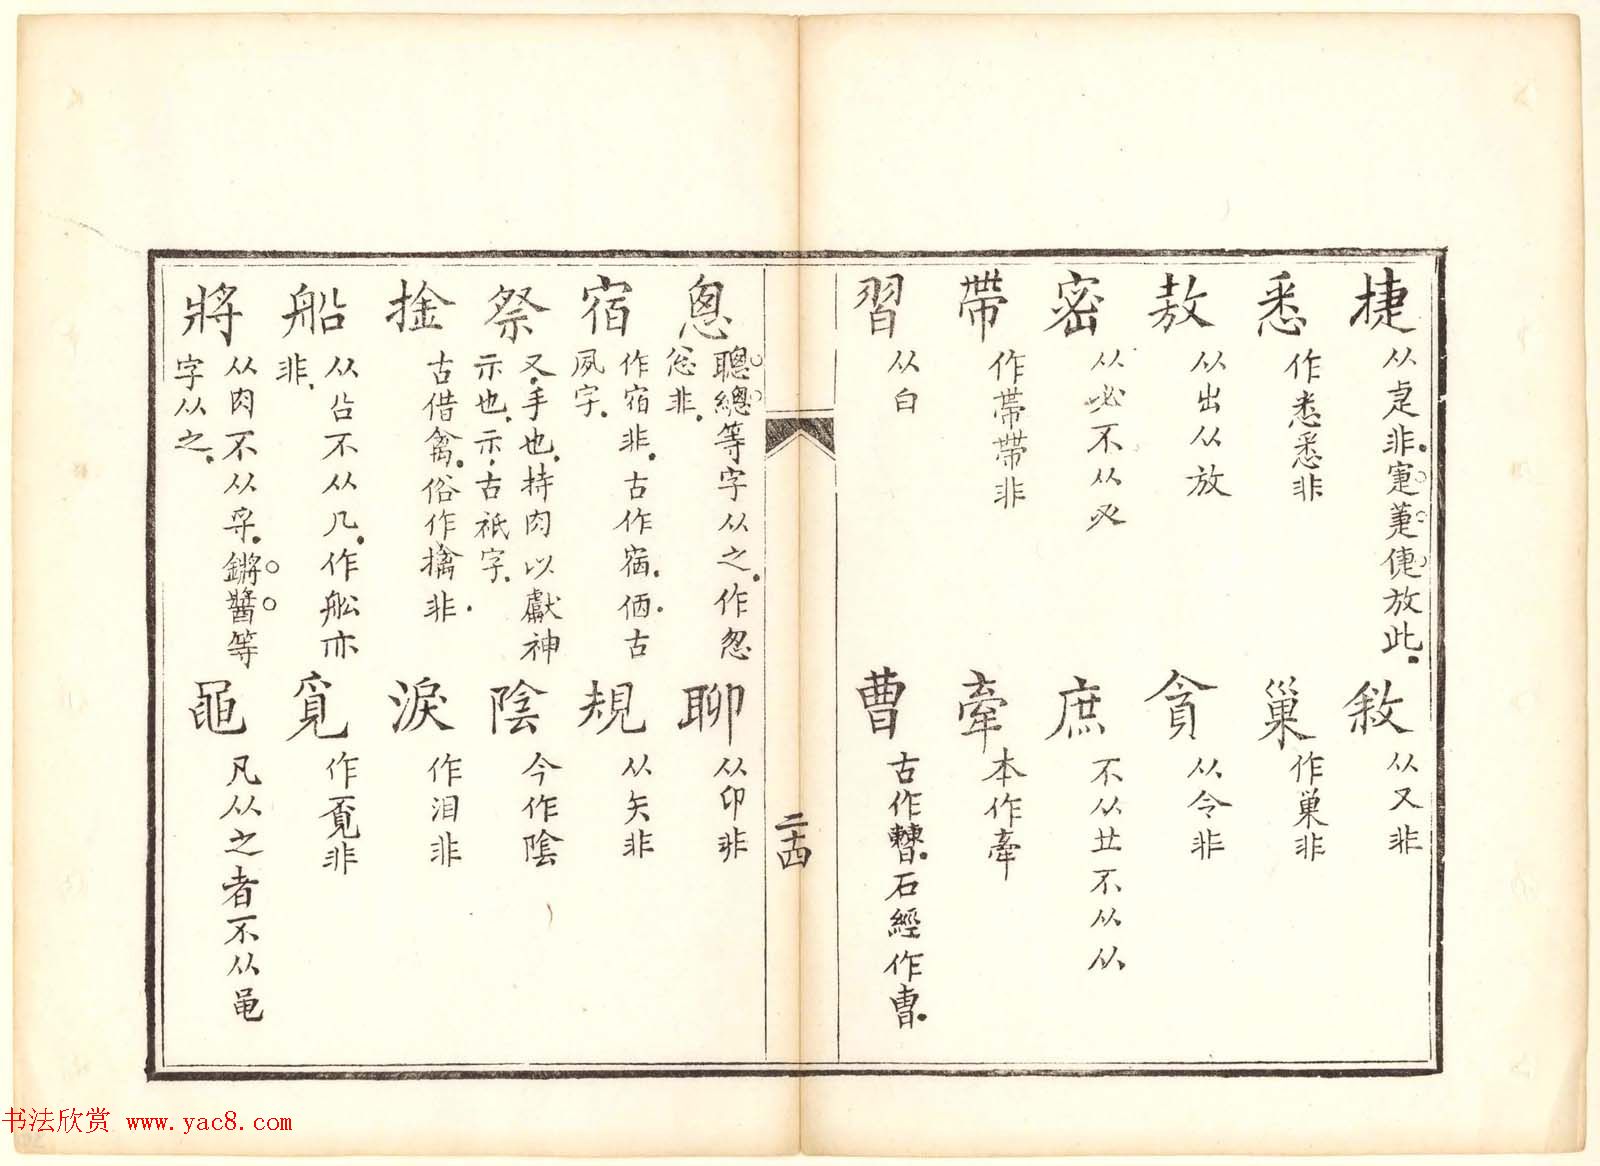 捷 从疌非.寁萐倢放此. 敘 从又非
悉 作悉悉非 巢 作巢非
敖 从出从放 貪 从令非
密 从必不从必 庶 不从廿不从从
帶 作帶帶非 牽 本作牽
習 从白 曹 古作𣍘.石經作曹.
二十四
悤 聰總等字从之.作怱
忩非. 聊 从卬非
宿 作宿非.古作宿.㐁古
夙字. 規 从矢非
祭 又手也.持肉以獻神
示也.示古祇字. 陰 今作陰
捦 古借禽.俗作擒非. 淚 作泪非
船 从㕣不从几.作舩亦
非. 覓 作覔非
將 从肉不从寽.鏘醬等
字从之. 黽 凡从之者不从黾
书法欣赏 www.yac8.com